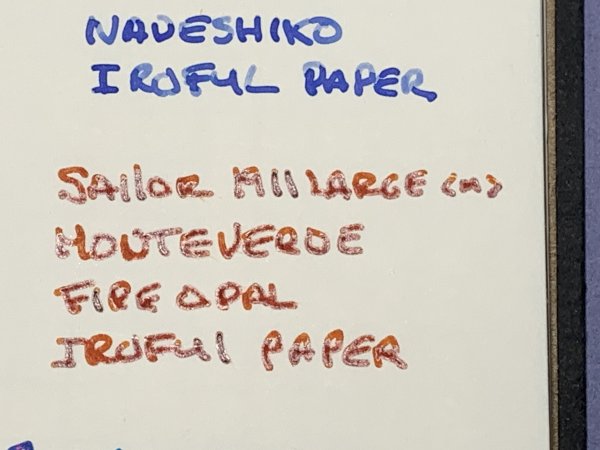 NADESHIKO
IROFUL PAPER
SAILOR MII LARGE <M>
MONTEVERDE
FIRE OPAL
IROFUL PAPER